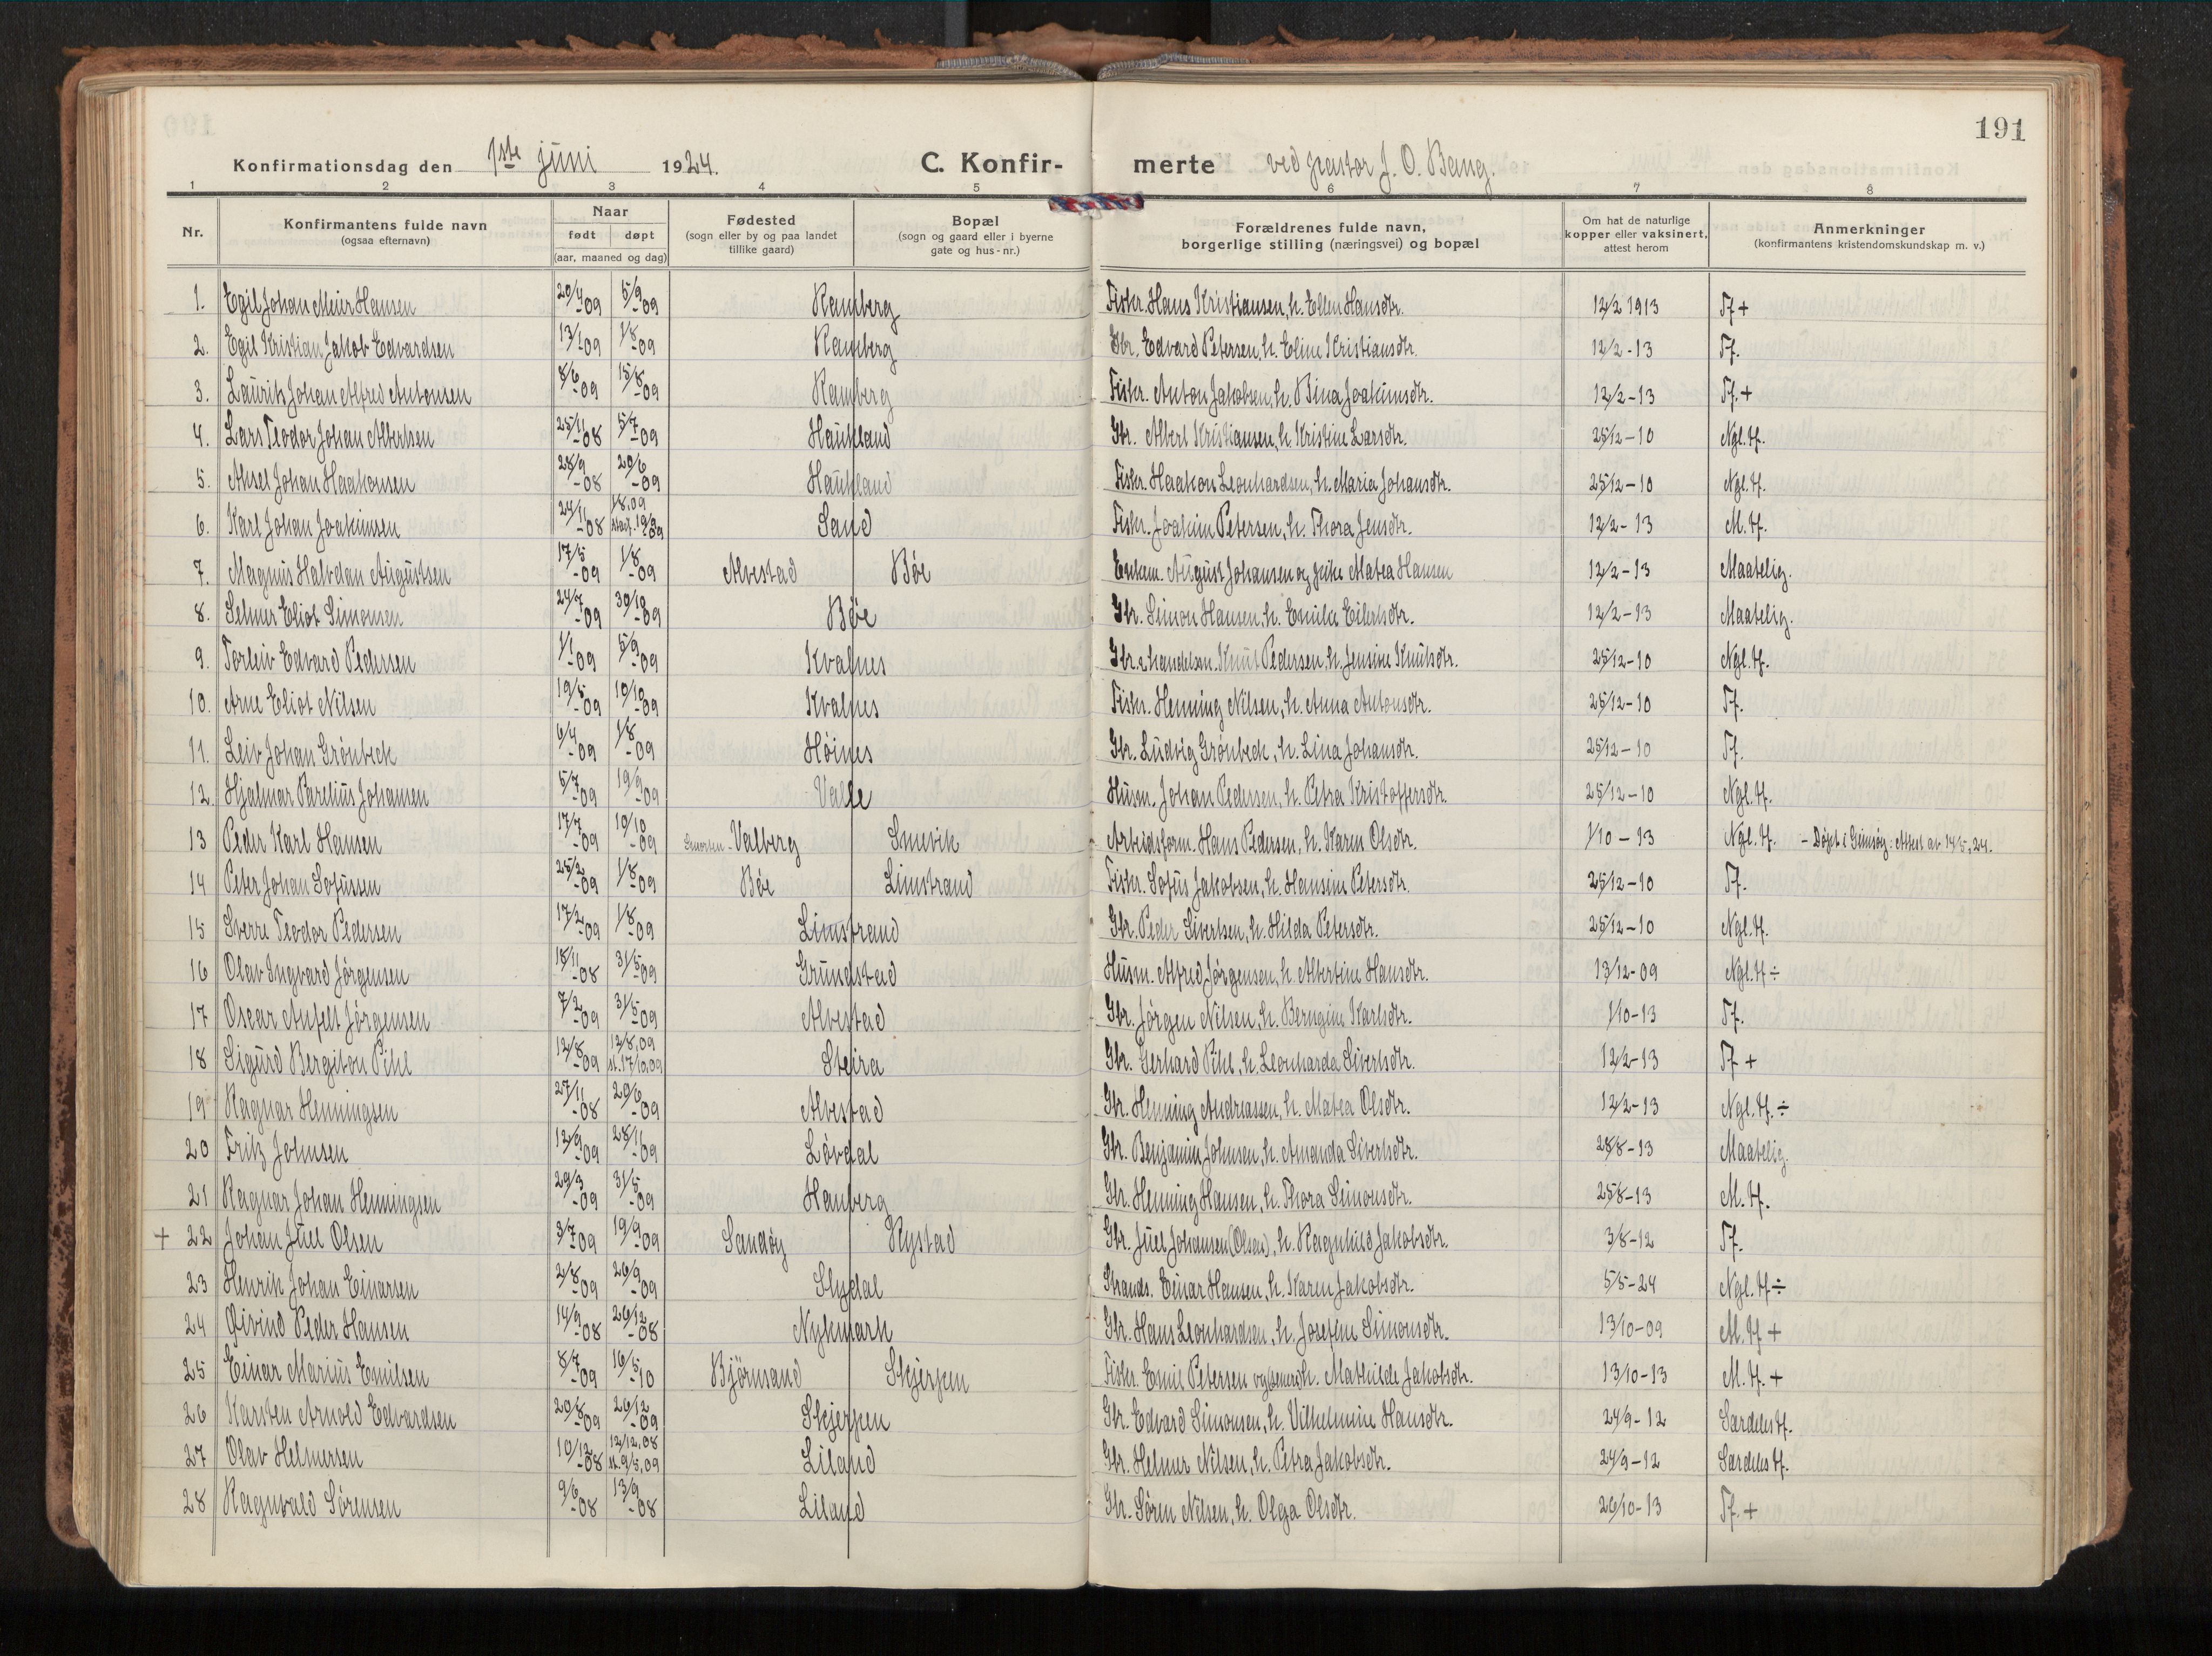 191
Konfirmationsdag den 1ste juni 1924. C. Konfirmerte ved pastor J. O. Bang.
1 2 3 4 5 6 7 8
Nr. Konfirmantens fulde navn (ogsaa efternavn) Naar født døpt (aar, maaned og dag) Fødested (sogn eller by og paa landet tillike gaard) Bopæl (sogn og gaard eller i byerne gate og hus-nr.) Forældrenes fulde navn, borgerlige stilling (næringsvei) og bopæl Om hat de naturlige kopper eller vaksinert, attest herom Anmerkninger (konfirmantens kristendomskundskap m. v.)
1. Egil Johan Meier Hansen 20/4-09 5/9-09 Ramberg Fisker. Hans Kristiansen, h. Ellen Hansdtr. 12/2 1913 Tf +
2. Egil Kristian Jakob Edvardsen 13/1-09 1/8-09 Ramberg Gbr. Edvard Petersen, h. Eline Kristiansdtr. 12/2-13 Tf.
3. Laurits Johan Alfred Antonsen 8/6-09 15/8-09 Ramberg Fisker. Anton Jakobsen, h. Bina Joakimsdtr. 12/2-13 Tf. +
4. Lars Teodor Johan Albertsen 25/11-08 5/7-09 Haukland Gbr. Albert Kristiansen, h. Kristine Larsdtr. 25/12-10 Ngl. tf.
5. Aksel Johan Haakonsen 28/9-08 20/6-09 Haukland Fisker. Haakon Leonhardsen, h. Maria Johansdtr. 25/12-10 Ngl. tf.
6. Karl Johan Joakimsen 24/11-08 1/8.09 stad. 19/9 09 Sand Fisker. Joakim Petersen, h. Thora Jensdtr. 12/2-13 M. tf.
7. Magnus Halvdan Augustsen 17/5-09 1/8-09 Alvestad Bøe Enkem. August Johansen og pike Matea Hansen 12/2-13 Maatelig.
8. Selmer Eliot Simonsen 24/7-09 30/10-09 Bøe Gbr. Simon Hansen, h. Emilie Eilertsdtr. 12/2-13 Maatelig.
9. Torleiv Edvard Pedersen 1/1-09 5/9-09 Kvalnes Gbr. & handelsm. Knut Pedersen, h. Jensine Knutsdtr. 25/12-10 Ngl. tf.
10. Arne Eliot Nilsen 19/5-09 10/10-09 Kvalnes Fisker. Henning Nilsen, h. Anna Antonsdtr. 25/12-10 Tf.
11. Leiv Johan Grønbech 6/4-09 1/8-09 Høines Gbr. Ludvig Grønbech, h. Lina Johansdtr. 25/12-10 Tf.
12. Hjalmar Parelius Johansen 5/7-09 19/9-09 Valle Husm. Johan Pedersen, h. Petra Kristoffersdtr. 25/12-10 Ngl. tf.
13 Peder Karl Hansen 17/7-09 10/10-09 Valberg Smevik Arbeidsform. Hans Pedersen, h. Karen Olsdtr. 1/10-13 Ngl. tf. - Døpt i Gimsøy: Attest av 14/5.24.
14 Peter Johan Sofussen 25/2-09 1/8-09 Bøe Limstrand Fisker. Sofus Jakobsen, h. Hansine Petersdtr. 25/12-10 Tf.
15 Sverre Teodor Pedersen 17/2-09 1/8-09 Limstrand Gbr. Peder Sivertsen, h. Hilda Petersdtr. 25/12-10 Ngl. tf.
16 Olav Ingvard Jørgensen 18/11-08 31/5-09 Grundstad Husm. Alfred Jørgensen, h. Albertine Hansdtr. 13/12-09 Ngl. tf ÷
17 Oscar Anfelt Jørgensen 7/2-09 31/5-09 Alvestad Gbr. Jørgen Nilsen, h. Berngine Karlsdtr. 1/10-13 Tf.
18 Sigurd Bergiton Pihl 12/8-09 13/8.09 st. 17/10.09 Steira Gbr. Gerhard Pihl, h. Leonharda Sivertsdtr. 12/2-13 Tf +
19 Ragnar Henningsen 27/11-08 20/6-09 Alvestad Gbr. Henning Andreassen, h. Matea Olsdtr. 12/2-13 Ngl. tf. ÷
20 Fritz Johnsen 12/9-09 28/11-09 Løvdal Gbr. Benjamin Johnsen, h. Amanda Sivertsdtr. 28/8-13 Maatelig.
21 Ragnar Johan Henningsen 29/3-09 31/5-09 Hanberg Gbr. Henning Hansen, h. Thora Simonsdtr. 25/8-13 M. tf.
+ 22 Johan Juel Olsen 3/7-09 19/9-09 Sandøy Rystad Gbr. Juel Johansen (Olsen), h. Ragnhild Jakobsdtr. 3/8-12 Tf.
23 Henrik Johan Einarsen 2/8-09 26/9-09 Slydal Strands. Einar Hansen, h. Karen Jakobsdtr. 5/5-24 Ngl. tf ÷
24 Øivind Peder Hansen 14/9-08 26/12-08 Nykmark Gbr. Hans Leonhardsen, h. Josefine Simonsdtr. 13/10-09 M. tf +
25 Einar Marius Emilsen 8/7-09 16/5-10 Bjørnsand Skjerpen Fisker. Emil Petersen h. Mathilde Jakobsdtr. 13/10-13 M. tf. +
26 Karsten Arnold Edvardsen 20/8-09 26/12-09 Skjerpen Gbr. Edvard Simonsen, h. Vilhelmine Hansdtr. 24/9-12 Særdeles tf.
27 Olav Helmersen 10/12-08 12/12.08 st. 9/5.09 Liland Gbr. Helmer Nilsen, h. Petra Jakobsdtr. 24/9-12 Særdeles tf.
28 Ragnvald Sørensen 9/6-08 13/9-08 Liland Gbr. Søren Nilsen, h. Olga Olsdtr. 26/10-13 Tf. +